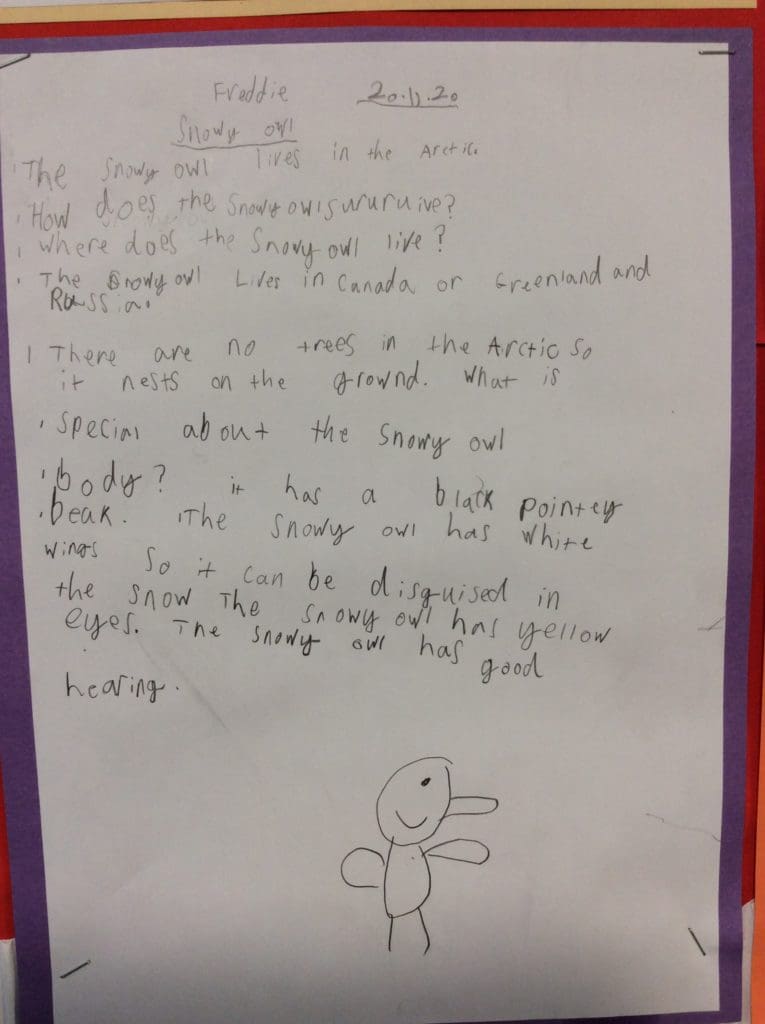 Freddie 20.11.20
Snowy owl
The Snowy owl lives in the Arctic.
How does the Snowy owl sururuive?
where does the Snowy owl live?
The Snowy owl Lives in Canada or Greenland and
Russia.
There are no trees in the Arctic so
it nests on the grownd. What is
special about the snowy owl
body? it has a black pointey
beak. The snowy owl has white
wings so it can be disguised in
the snow The snowy owl has yellow
eyes. The snowy owl has good
hearing.